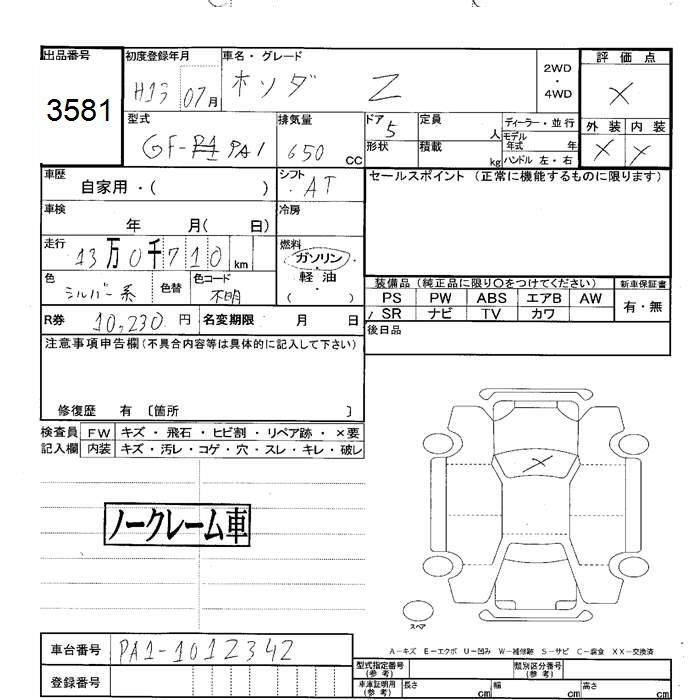 出品番号 初度登録年月 車名・グレード 2WD・4WD 評価点
3581 H13 07月 ホンダ Z X
型式 排気量 ドア 定員 ディーラー・並行 外装 内装
GF-PA1 650 CC 5 人 モデル年式 年 X X
形状 積載 kg ハンドル 左・右
車歴 シフト セールスポイント (正常に機能するものに限ります)
自家用・( ) ・AT
車検 冷房
年 月( 日)
走行 燃料
13万0千710km ガソリン・
色 色替 色コード 軽油・
シルバー系 不明 ( )
装備品(純正品に限り○をつけてください) 新車保証書
PS PW ABS エアB AW 有・無
/SR ナビ TV カワ
R券 10,230 円 名変期限 月 日 後日品
注意事項申告欄(不具合内容等は具体的に記入して下さい)
修復歴 有 〔箇所 〕
検査員 FW キズ・飛石・ヒビ割・リペア跡・×要
記入欄 内装 キズ・汚レ・コゲ・穴・スレ・キレ・破レ
X
ノークレーム車
スペア
車台番号 PA1-1012342
A-キズ E-エクボ U-凹み W-補修跡 S-サビ C-腐食 XX-交換済
登録番号
型式指定番号(参考) 類別区分番号(参考)
車庫証明用(参考) 長さ cm 幅 cm 高さ cm